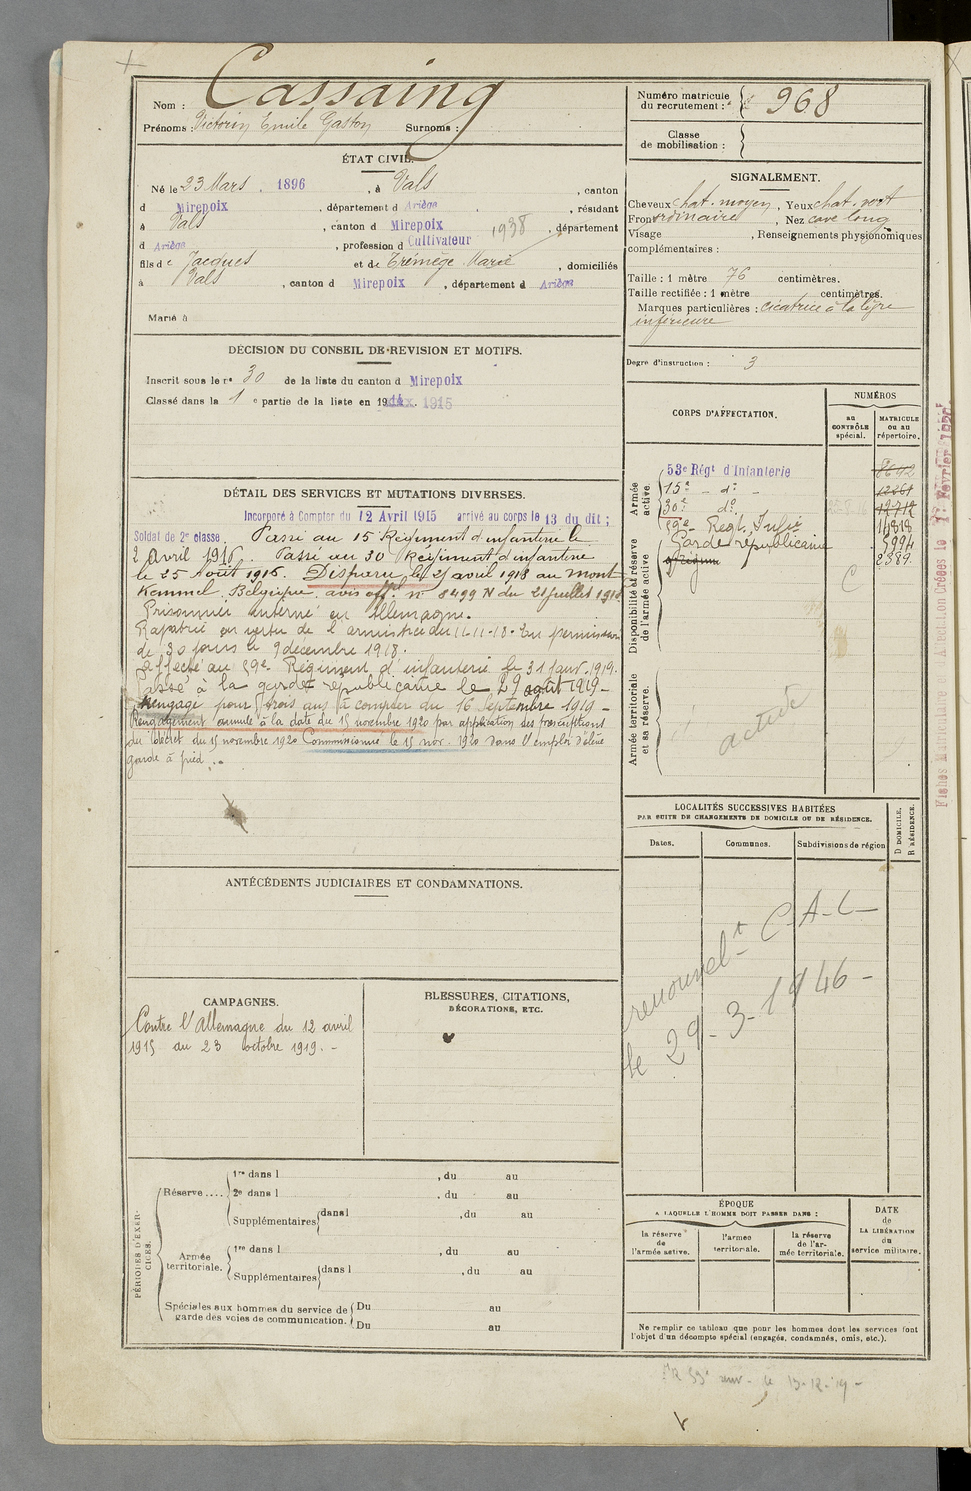 Cassaing
Nom :
Prénoms : Victorin Emile Gaston Surnoms :
Numéro matricule du recrutement : 968
Classe de mobilisation :
ÉTAT CIVIL.
Né le 23 Mars 1896, à Vals, canton
d Mirepoix, département d Ariège, résidant
à Vals, canton d Mirepoix 1938, département
d Ariège, profession d Cultivateur
fils de Jacques et de Trémège Marie, domiciliés
à Vals, canton d Mirepoix, département d Ariège
Marié à
DÉCISION DU CONSEIL DE REVISION ET MOTIFS.
Inscrit sous le n° 30 de la liste du canton d Mirepoix
Classé dans la 1 e partie de la liste en 19 1915
DÉTAIL DES SERVICES ET MUTATIONS DIVERSES.
Incorporé à Compter du 12 Avril 1915 arrivé au corps le 13 du dit ;
Soldat de 2e classe. Passé au 15 Régiment d'infanterie le
2 Avril 1916. Passé au 30 Régiment d'infanterie
le 25 Août 1916. Disparu le 25 avril 1918 au Mont
Kemmel, Belgique. avis off. n° 8499 N du 21 juillet 1918
Prisonnier interné en Allemagne.
Rapatrié en vertu de l'armistice du 11-11-18. En permission
de 30 jours le 9 décembre 1918.
Affecté au 59e Régiment d'infanterie le 31 janv. 1919.
Passé à la garde républicaine le 29 août 1919 -
Rengagé pour trois ans à compter du 16 Septembre 1919 -
Rengagement annulé à la date du 15 novembre 1920 par application des prescriptions
du décret du 15 novembre 1920 Commissionné le 15 nov. 1920 dans l'emploi d'élève
garde à pied.
ANTÉCÉDENTS JUDICIAIRES ET CONDAMNATIONS.
CAMPAGNES.
Contre l'Allemagne du 12 avril
1915 au 23 octobre 1919. -
BLESSURES, CITATIONS,
DÉCORATIONS, ETC.
PÉRIODES D'EXERCICES.
Réserve ....
1re dans l , du au
2e dans l , du au
Supplémentaires dans l , du au
Armée territoriale.
1re dans l , du au
Supplémentaires dans l , du au
Spéciales aux hommes du service de garde des voies de communication.
Du au
Du au
SIGNALEMENT.
Cheveux chat. moyen, Yeux chat. vert,
Front ordinaire, Nez cave long
Visage , Renseignements physionomiques
complémentaires :
Taille : 1 mètre 76 centimètres.
Taille rectifiée : 1 mètre centimètres.
Marques particulières : cicatrice à la lèvre
inférieure
Degré d'instruction : 3
CORPS D'AFFECTATION.
NUMÉROS
AU CONTRÔLE spécial.
MATRICULE OU AU répertoire.
Armée active.
53e Régt d'Infanterie 8642
15e - do -
30e do. 12712
59e Regt. Infie 14818
Garde républicaine 5994
2389
C
Disponibilité et réserve de l'armée active.
Armée territoriale et sa réserve.
LOCALITÉS SUCCESSIVES HABITÉES
PAR SUITE DE CHANGEMENTS DE DOMICILE OU DE RÉSIDENCE.
Dates.
Communes.
Subdivisions de région
D DOMICILE.
R RÉSIDENCE.
renouvelt C-A-L-
le 29-3-1946-
ÉPOQUE
A LAQUELLE L'HOMME DOIT PASSER DANS :
la réserve de l'armée active.
l'armée territoriale.
la réserve de l'armée territoriale.
DATE de LA LIBÉRATION du service militaire.
Ne remplir ce tableau que pour les hommes dont les services font
l'objet d'un décompte spécial (engagés, condamnés, omis, etc.).